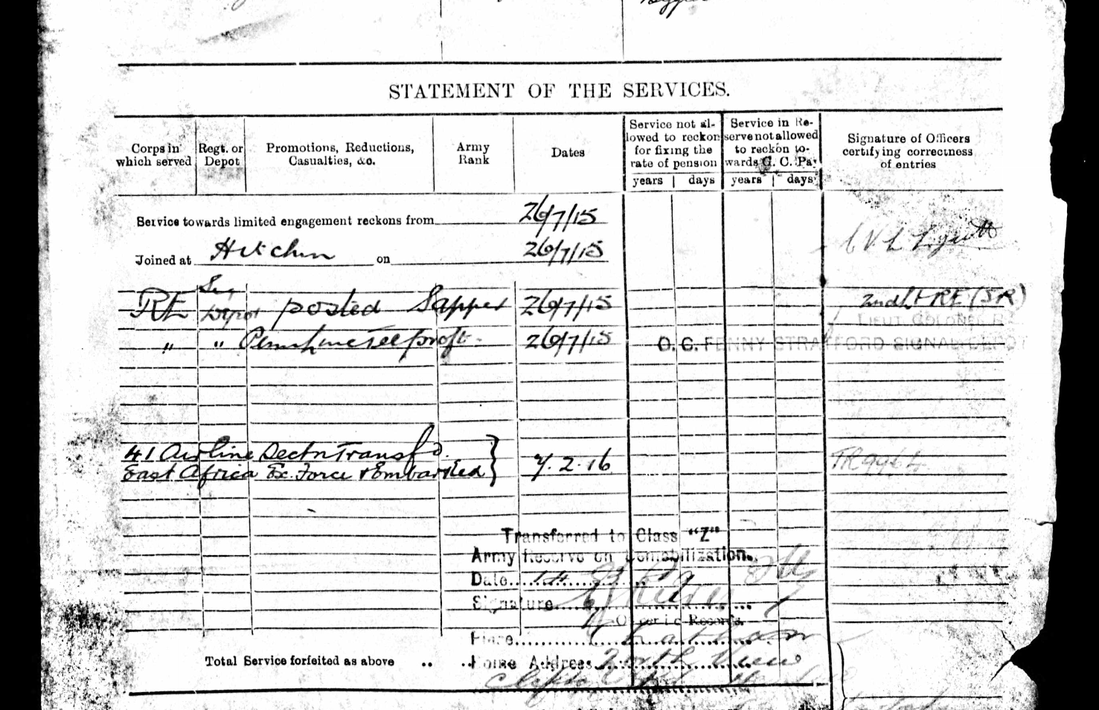 STATEMENT OF THE SERVICES.
Corps in which served
Regt. or Depot
Promotions, Reductions, Casualties, &c.
Army Rank
Dates
Service not allowed to reckon for fixing the rate of pension
years days
Service in Reserve not allowed to reckon towards G. C. Pay
years days
Signature of Officers certifying correctness of entries
Service towards limited engagement reckons from 26/7/15
Joined at Hitchin on 26/7/15
RE Sig Depot posted Sapper 26/7/15
2nd Lt RE (SR)
LIEUT COLONEL R
" " 26/7/15
O. C. FENNY STRATFORD SIGNAL DEPOT
41 Airline Sectn Transfd
East Africa Ex. Force & Embarked 7.2.16
Transferred to Class "Z"
Army Reserve on Demobilization.
Date
Signature
i/c Records
Place
Total Service forfeited as above .. .. Home Address North View